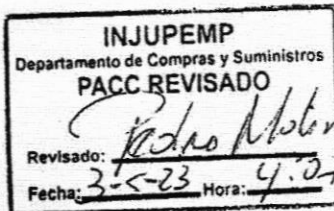 INJUPEMP
Departamento de Compras y Suministros
PACC REVISADO
Revisado: Pedro
Fecha: 3-5-23 Hora: 4: